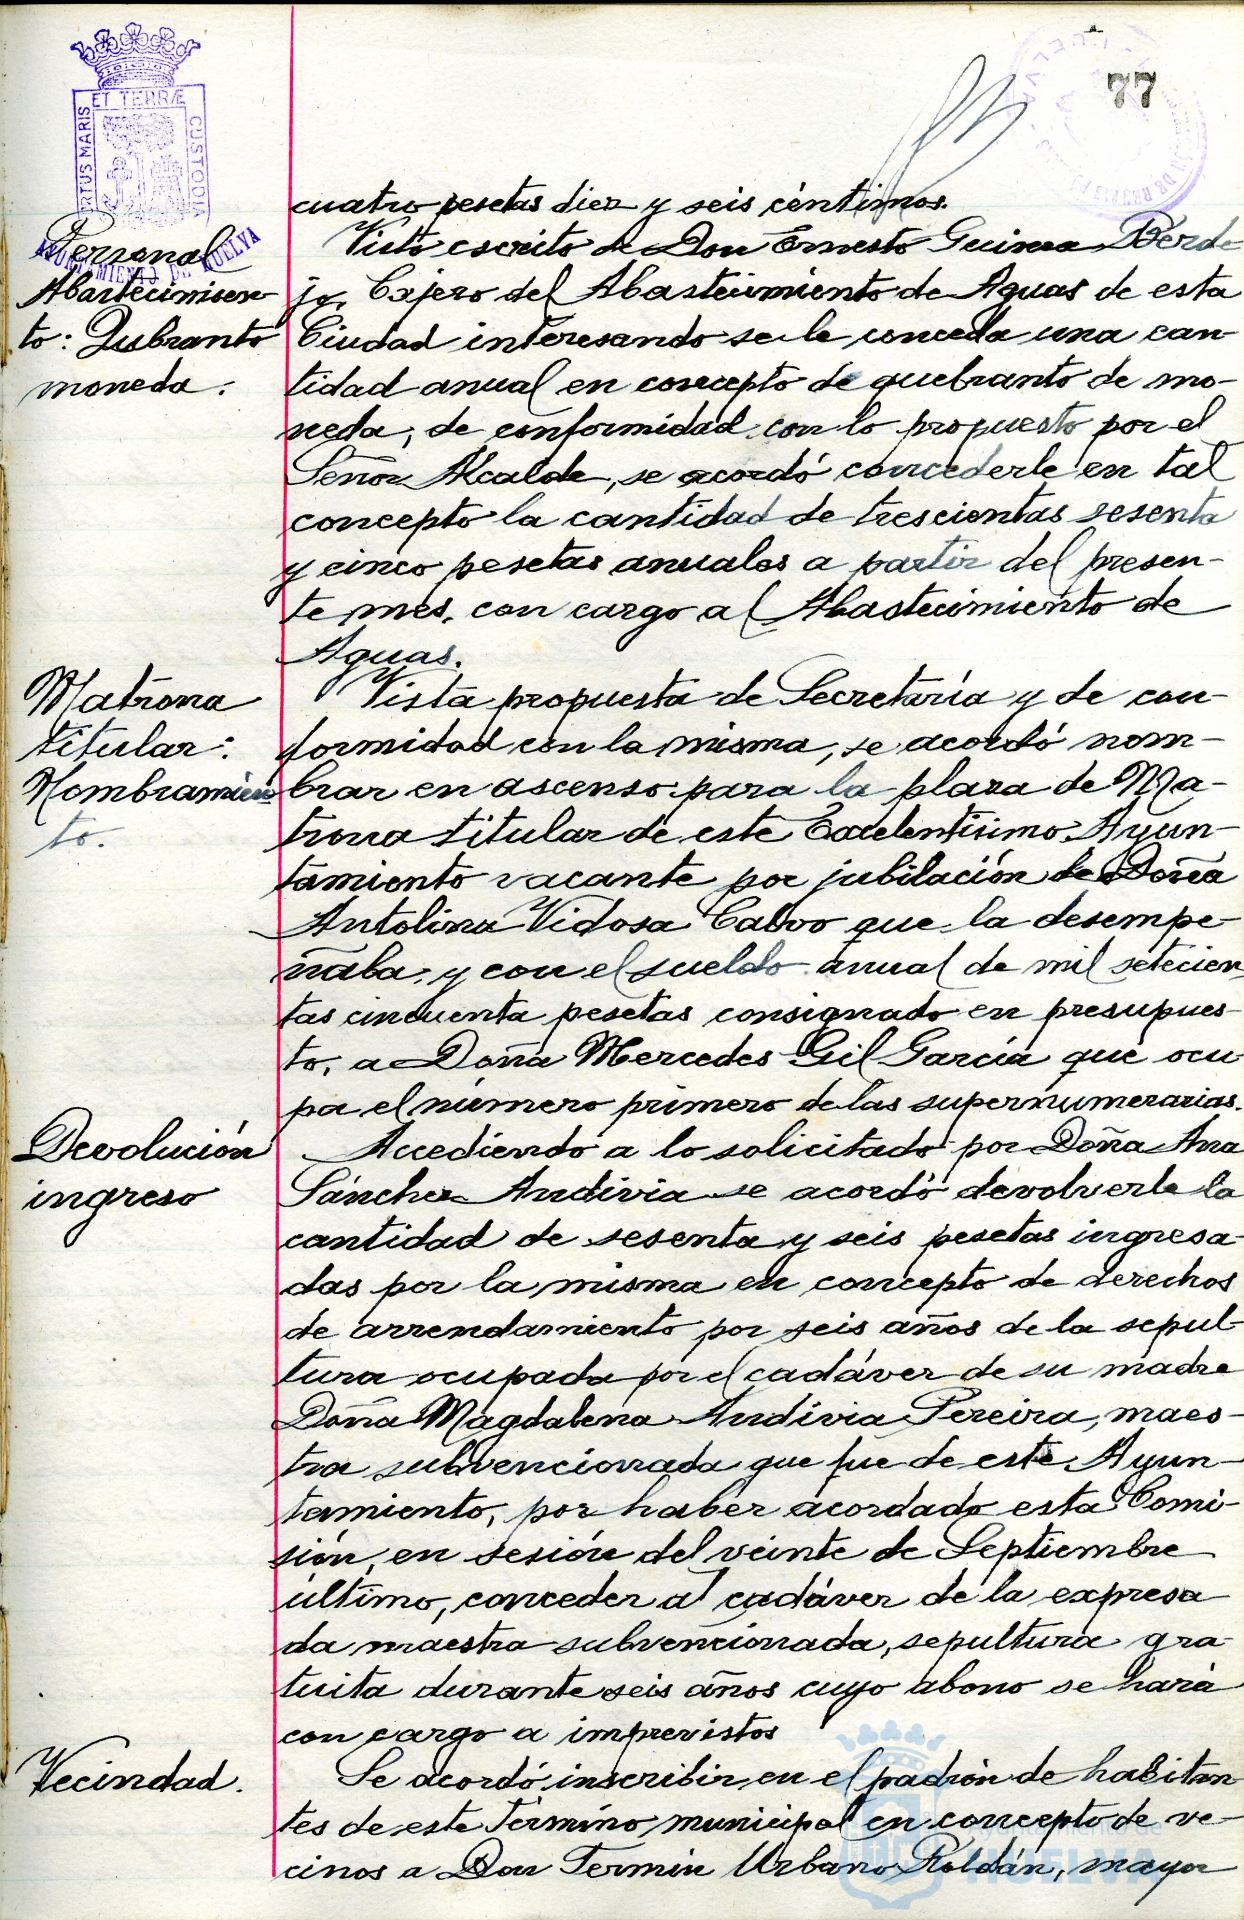 77
PORTUS MARIS ET TERRÆ CUSTODIA
AYUNTAMIENTO DE HUELVA
cuatro pesetas diez y seis céntimos.
Personal
Abastecimien
to: Qubranto
moneda.
Visto escrito de Don Ernesto Guinea Berde
jo, Cajero del Abastecimiento de Aguas de esta
Ciudad interesando se le conceda una can
tidad anual en concepto de quebranto de mo-
neda, de conformidad con lo propuesto por el
Señor Alcalde, se acordó concederle en tal
concepto la cantidad de trescientas sesenta
y cinco pesetas anuales a partir del presen-
te mes, con cargo al Abastecimiento de
Aguas.
Matrona
titular:
Nombramien
to.
Vista propuesta de Secretaría y de con-
formidad con la misma, se acordó nom-
brar en ascenso para la plaza de Ma-
trona titular de este Excelentísimo Ayun-
tamiento vacante por jubilación de Doña
Antolina Vidosa Calvo que la desempe-
ñaba, y con el sueldo anual de mil setecien
tas cincuenta pesetas consignado en presupues-
to, a Doña Mercedes Gil García que ocu
pa el número primero de las supernumerarias.
Devolución
ingreso
Accediendo a lo solicitado por Doña Ana
Sánchez Andivia se acordó devolverle la
cantidad de sesenta y seis pesetas ingresa-
das por la misma en concepto de derechos
de arrendamiento por seis años de la sepul-
tura ocupada por el cadáver de su madre
Doña Magdalena Andivia Pereira, maes-
tra subvencionada que fue de este Ayun-
tamiento, por haber acordado esta Comi-
sión, en sesión del veinte de Septiembre
último, conceder al cadáver de la expresa-
da maestra subvencionada, sepultura gra-
tuita durante seis años cuyo abono se hará
con cargo a imprevistos
Vecindad.
Se acordó inscribir en el padrón de habitan
tes de este Término municipal en concepto de ve-
cinos a Don Fermin Urbano Roldán, mayor
Ayuntamiento de
HUELVA